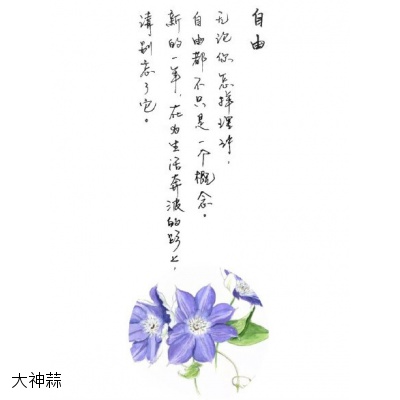 自由
无论你怎样理解，
自由都不只是一个概念。
新的一年，在为生活奔波的路上，
请别忘了它。
大神蒜